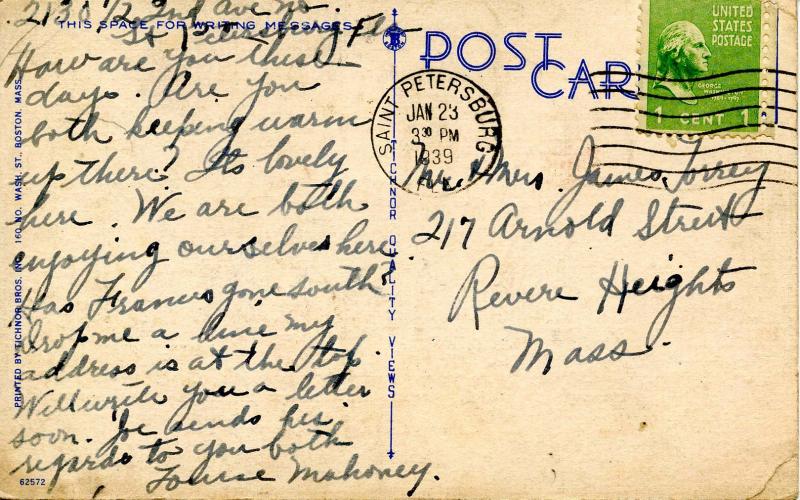 2130 1/2 2nd Ave No.
St Petersburg Fla
THIS SPACE FOR WRITING MESSAGES
How are you these
days. Are you
both keeping warm
up there? Its lovely
here. We are both
enjoying ourselves here
Has Frances gone south?
Drop me a line my
address is at the top.
Will write you a letter
soon. Joe sends his
regards to you both
Louise Mahoney.
62572
PRINTED BY TICHNOR BROS. INC. 160 NO. WASH. ST., BOSTON, MASS.
TICHNOR QUALITY VIEWS
POST CAR
SAINT PETERSBURG
JAN 23
3 30 PM
1939
FLA.
UNITED
STATES
POSTAGE
GEORGE
WASHINGTON
1789-1797
1 CENT 1
Mr. & Mrs. James Torrey
217 Arnold Street
Revere Heights
Mass.